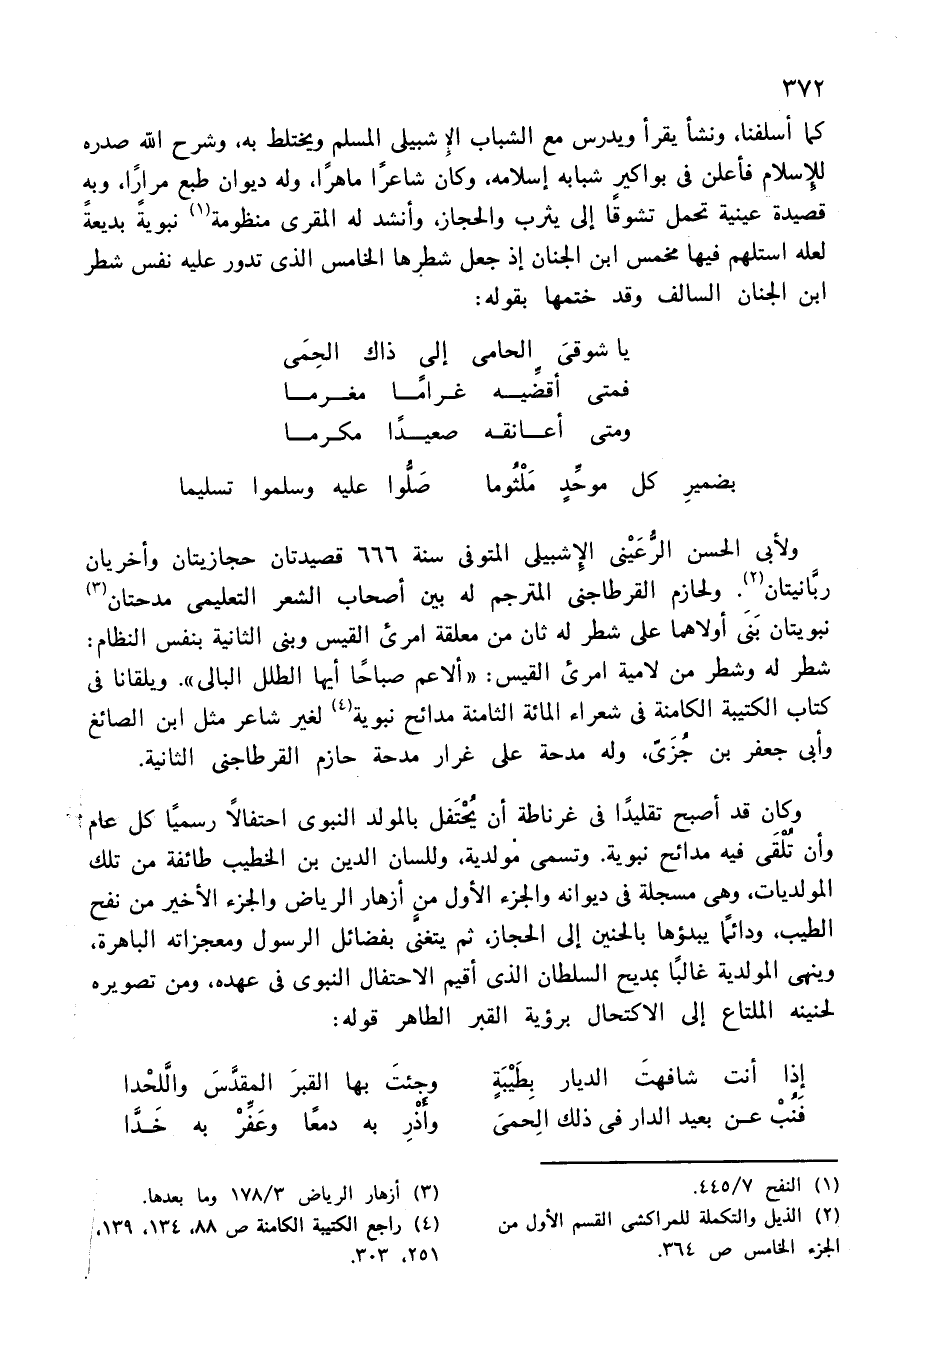 ٣٧٢
كما أسلفنا، ونشأ يقرأ ويدرس مع الشباب الإشبيلى المسلم ويختلط به، وشرح الله صدره
للإسلام فأعلن فى بواكير شبابه إسلامه، وكان شاعرًا ماهرًا، وله ديوان طبع مرارًا، وبه
قصيدة عينية تحمل تشوقًا إلى يثرب والحجاز، وأنشد له المقرى منظومة(١) نبويةً بديعةً
لعله استلهم فيها مخمس ابن الجنان إذ جعل شطرها الخامس الذى تدور عليه نفس شطر
ابن الجنان السالف وقد ختمها بقوله:
يا شوقىَ الحامى إلى ذاك الحِمَى
فمتى أقضِّيـه غـرامًـا مغـرمـا
ومتى أعـانقـه صعيـدًا مكـرمـا
بضميرِ كل موحِّدٍ مَلْثُوما صَلُّوا عليه وسلموا تسليما
ولأبى الحسن الرُّعَيْنى الإشبيلى المتوفى سنة ٦٦٦ قصيدتان حجازيتان وأخريان
ربَّانيتان(٢). ولحازم القرطاجنى المترجم له بين أصحاب الشعر التعليمى مدحتان(٣)
نبويتان بَنَى أولاهما على شطر له ثان من معلقة امرئ القيس وبنى الثانية بنفس النظام:
شطر له وشطر من لامية امرئ القيس: «ألاعم صباحًا أيها الطلل البالى». ويلقانا فى
كتاب الكتيبة الكامنة فى شعراء المائة الثامنة مدائح نبوية(٤) لغير شاعر مثل ابن الصائغ
وأبى جعفر بن جُزَىّ، وله مدحة على غرار مدحة حازم القرطاجنى الثانية.
وكان قد أصبح تقليدًا فى غرناطة أن يُحْتَفل بالمولد النبوى احتفالاً رسميًا كل عام
وأن تُلْقَى فيه مدائح نبوية. وتسمى مولدية، وللسان الدين بن الخطيب طائفة من تلك
المولديات، وهى مسجلة فى ديوانه والجزء الأول من أزهار الرياض والجزء الأخير من نفح
الطيب، ودائمًا يبدؤها بالحنين إلى الحجاز، ثم يتغنَّى بفضائل الرسول ومعجزاته الباهرة،
وينهى المولدية غالبًا بمديح السلطان الذى أقيم الاحتفال النبوى فى عهده، ومن تصويره
لحنينه الملتاع إلى الاكتحال برؤية القبر الطاهر قوله:
إذا أنت شافهتَ الديار بِطَيْبَةٍ وجئتَ بها القبرَ المقدَّسَ واللَّحْدا
فَنُبْ عـن بعيد الدار فى ذلك الحِمىَ وأَذْرِ به دمعًا وعَفِّرْ به خَـدَّا
(١) النفح ٤٤٥/٧.
(٢) الذيل والتكملة للمراكشى القسم الأول من
الجزء الخامس ص ٣٦٤.
(٣) أزهار الرياض ١٧٨/٣ وما بعدها.
(٤) راجع الكتيبة الكامنة ص ٨٨، ١٣٤، ١٣٩،
٢٥١، ٣٠٣.